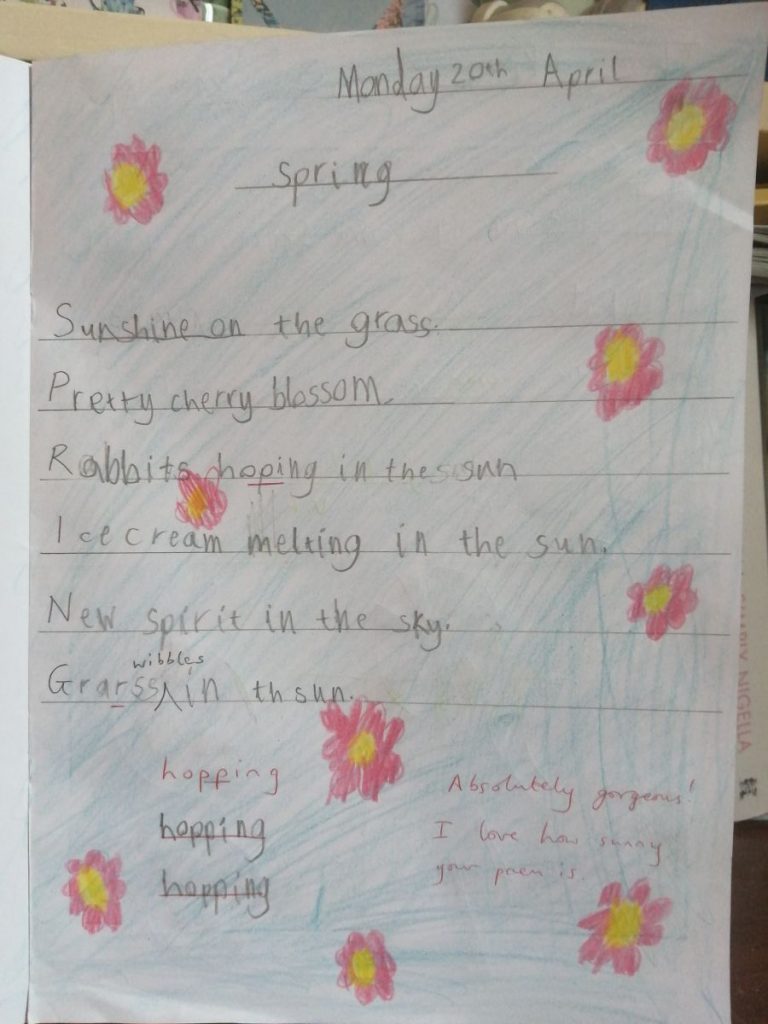 Monday 20th April
Spring
Sunshine on the grass.
Pretty cherry blossom.
Rabbits hoping in the sun
Ice cream melting in the sun.
New spirit in the sky.
wibbles
Grarss in th sun.
hopping
hopping
hopping
Absolutely gorgeous!
I love how sunny
your poem is.
NIGELLA